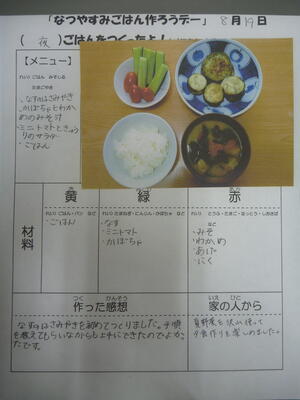 「なつやすみごはん作ろうデー」 8月19日
(夜)ごはんをつくったよ!
【メニュー】
れい)ごはん みそしる
たまごやき
・なすのはさみやき
・かぼちゃとわか
めのみそ汁
・ミニトマトときゅう
りのサラダ
・ごはん
材料
黄
れい)ごはん・パン など
・ごはん
緑
れい)たまねぎ・にんじん・かぼちゃ など
・なす
・ミニトマト
・かぼちゃ
赤
・みそ
・わかめ
・あげ
・にく
つく かんそう
作った感想
なすのはさみやきを初めてつくりました。手順
を教えてもらいながら上手にできたのでよか
ったです。
いえ ひと
家の人から
夏野菜を沢山使って
夕食作りを楽しめました。